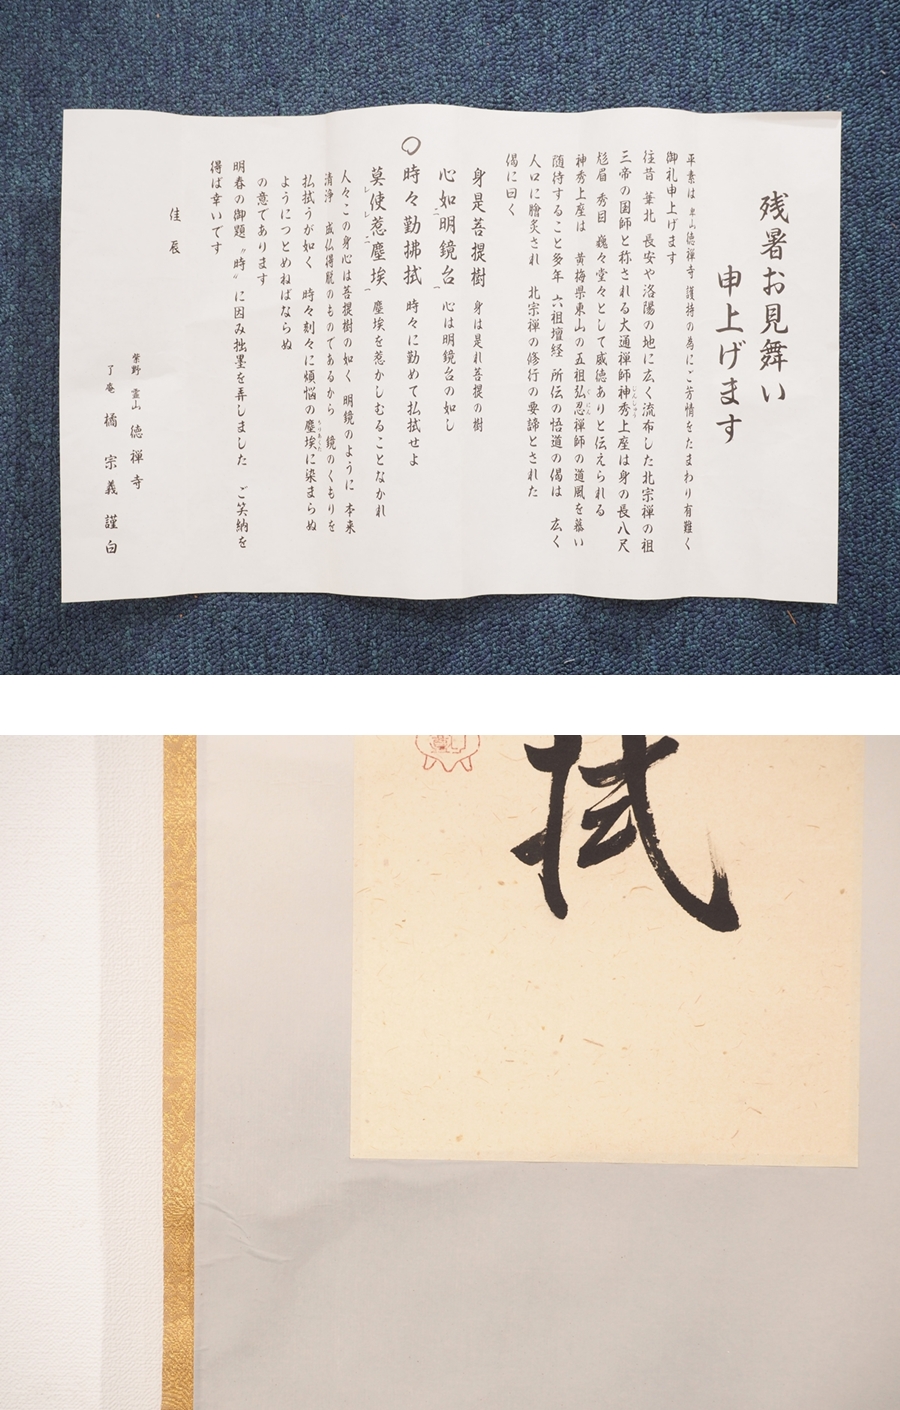 残暑お見舞い
申上げます
平素は 卑山徳禅寺 護持の為にご芳情をたまわり有難く
御礼申上げます
往昔 華北 長安や洛陽の地に広く流布した北宗禅の祖
三帝の国師と称される大通禅師神秀上座は身の長八尺
じんしゅう
尨眉 秀目 巍々堂々として威徳ありと伝えられる
神秀上座は 黄梅県東山の五祖弘忍禅師の道風を慕い
ぐにん
随待すること多年 六祖壇経 所伝の悟道の偈は 広く
人口に膾炙され 北宗禅の修行の要諦とされた
偈に曰く
身是菩提樹 身は是れ菩提の樹
心如二明鏡台一 心は明鏡台の如し
○時々勤拂拭 時々に勤めて払拭せよ
莫レ使レ惹二塵埃一 塵埃を惹かしむることなかれ
人々この身心は菩提樹の如く 明鏡のように 本来
清浄 成仏得脱のものであるから 鏡のくもりを
払拭うが如く 時々刻々に煩悩の塵埃に染まらぬ
ちりあくた
ようにつとめねばならぬ
の意であります
明春の御題〝時〟に因み拙墨を弄しました ご笑納を
得ば幸いです
佳辰
紫野 霊山 徳禅寺
了庵 橘宗義 謹白
拭